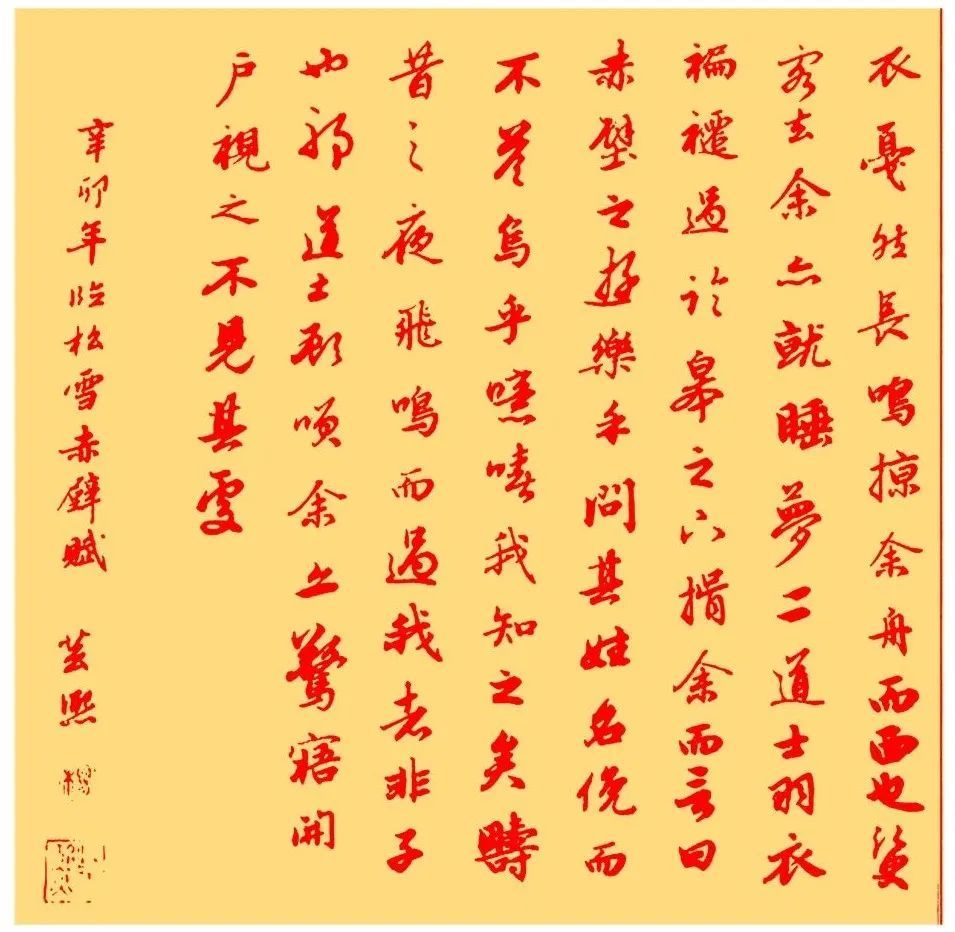 衣戛然長鳴掠余舟而西也須
客去余亦就睡夢二道士羽衣
褊褼過臨皋之下揖余而言曰
赤壁之遊樂乎問其姓名俛而
不答烏乎噫嘻我知之矣疇
昔之夜飛鳴而過我者非子
也邪道士顧咲余亦驚寤開
戶視之不見其處
辛卯年臨松雪赤壁賦 芸熙